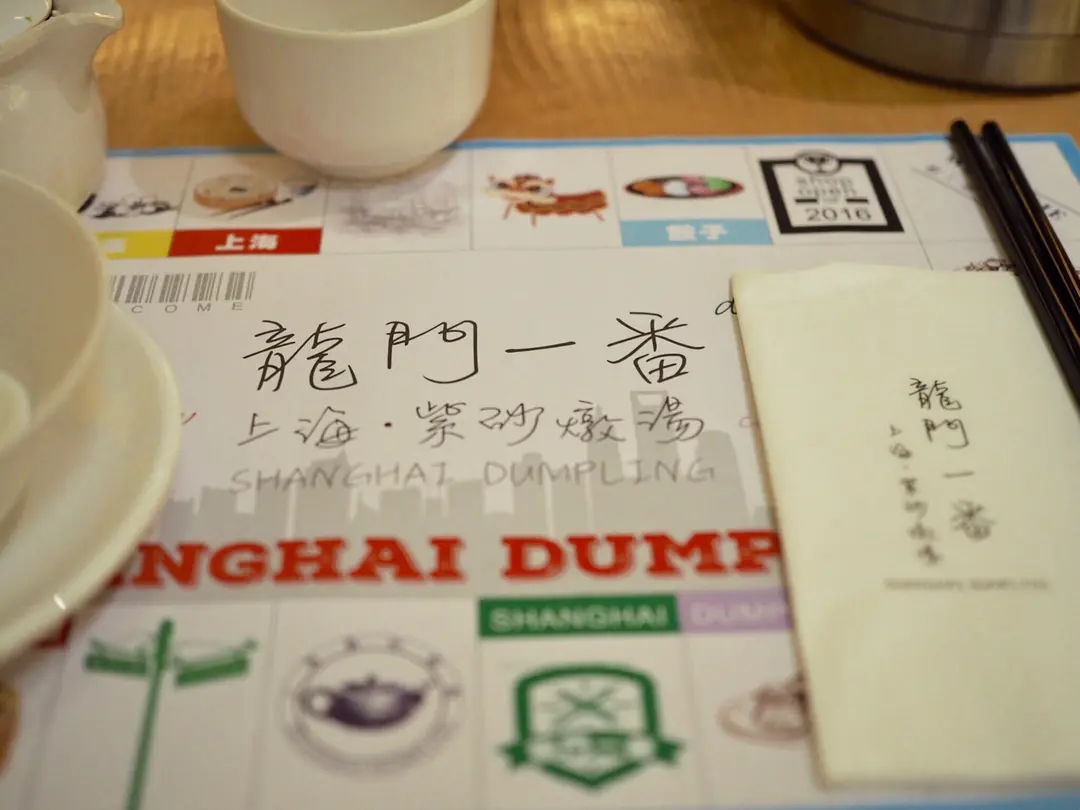 上海
餃子
shop
open
2016
COME
龍門一番
上海·紫砂燉湯
SHANGHAI DUMPLING
NGHAI DUMP
SHANGHAI
DUMP
龍門一番
上海·紫砂燉湯